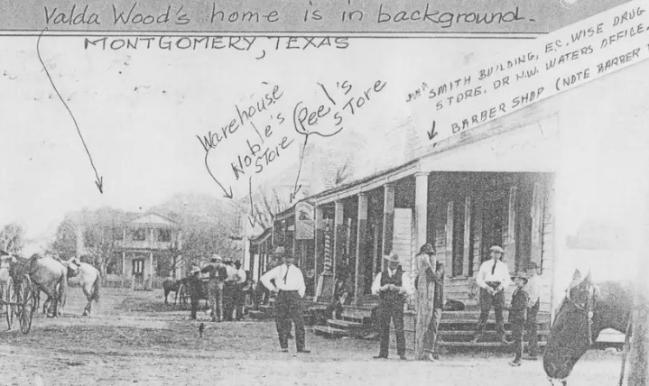 Valda Wood's home is in background.
MONTGOMERY, TEXAS
Warehouse
Noble's
Store
Peel's
Store
SMITH BUILDING, E.C. WISE DRUG
STORE. DR N.W. WATERS OFFICE.
BARBER SHOP (NOTE BARBER